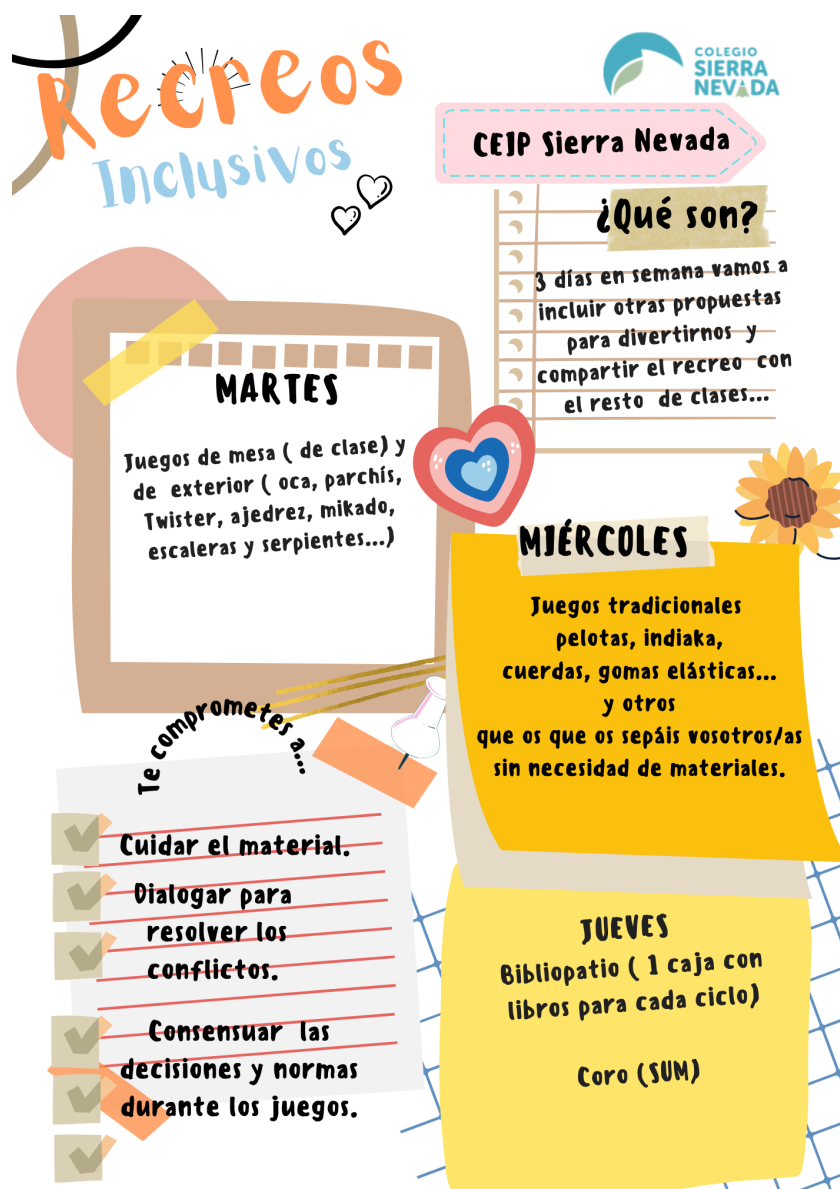 Recreos
Inclusivos
COLEGIO
SIERRA
NEVADA
CEIP Sierra Nevada
¿Qué son?
3 días en semana vamos a
incluir otras propuestas
para divertirnos y
compartir el recreo con
el resto de clases...
MARTES
Juegos de mesa ( de clase) y
de exterior ( oca, parchís,
Twister, ajedrez, mikado,
escaleras y serpientes...)
MIÉRCOLES
Juegos tradicionales
pelotas, indiaka,
cuerdas, gomas elásticas...
y otros
que os que os sepáis vosotros/as
sin necesidad de materiales.
Te comprometes a...
Cuidar el material.
Dialogar para
resolver los
conflictos.
Consensuar las
decisiones y normas
durante los juegos.
JUEVES
Bibliopatio ( 1 caja con
libros para cada ciclo)
Coro (SUM)